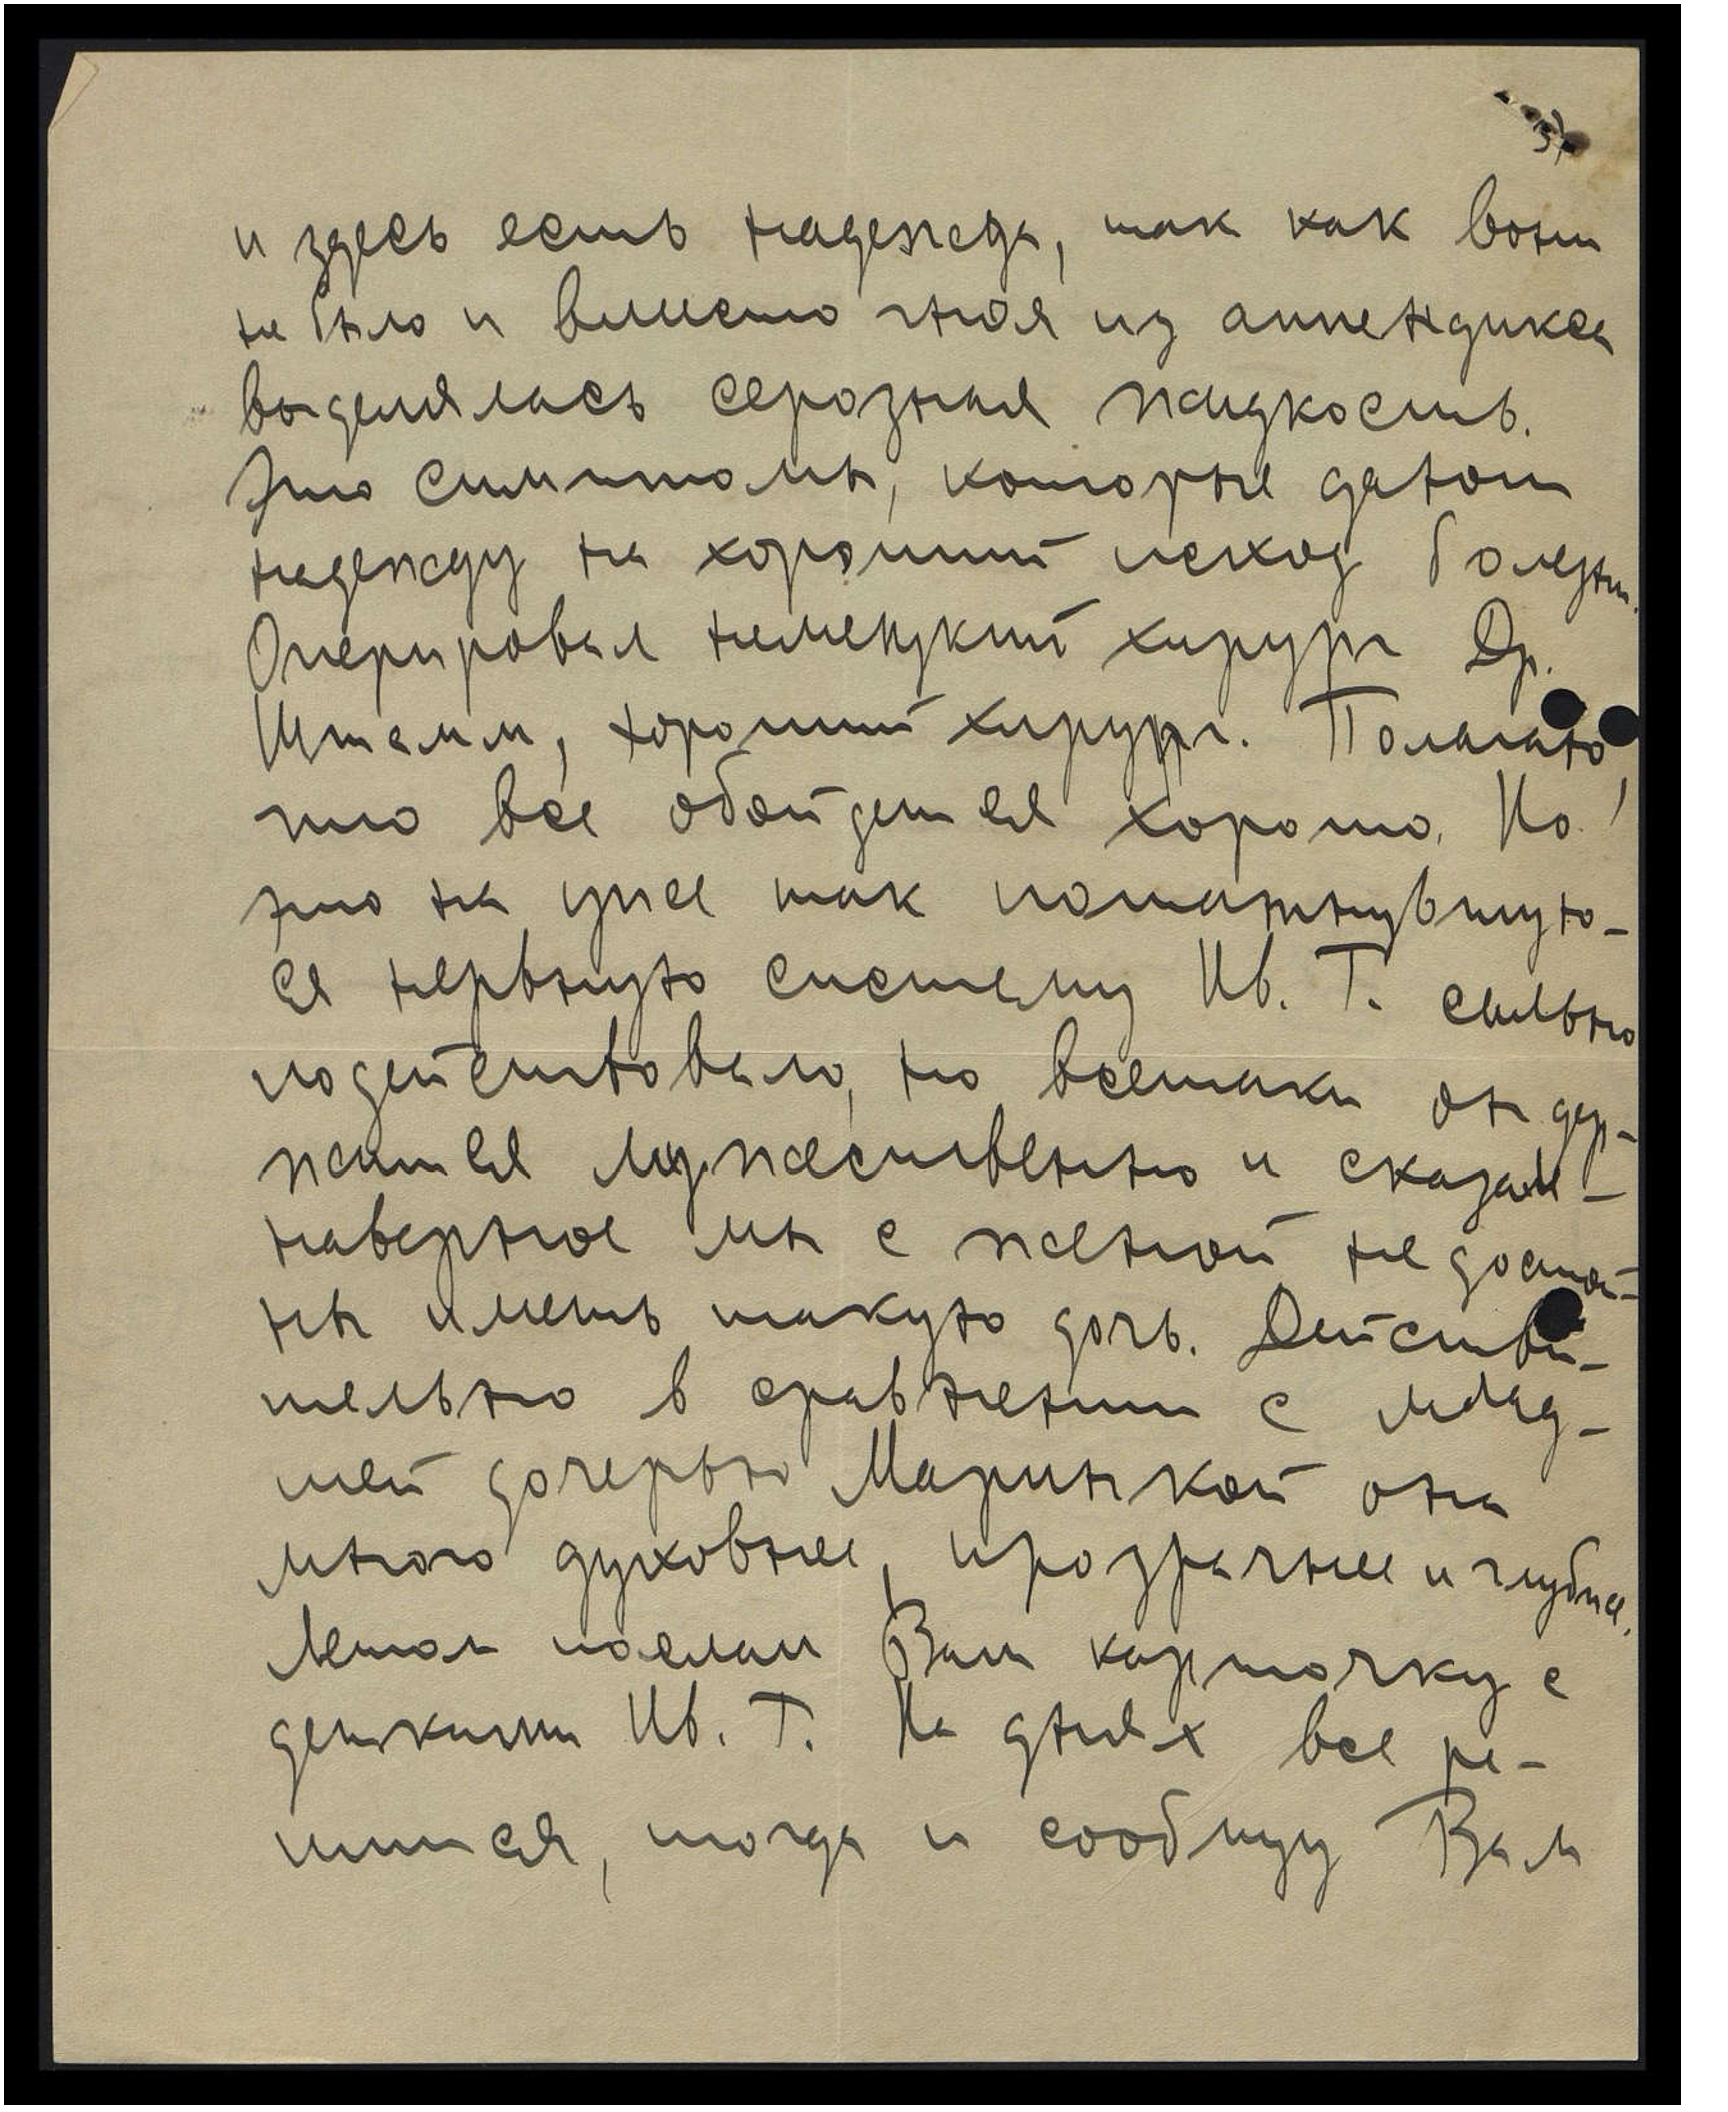 3)
и здесь есть надежда, так как вони
не было и вместо гноя из аппендикса
выделялась серозная жидкость.
Это симптомы, которые дают
надежду на хороший исход болезни.
Оперировал немецкий хирург Др.
Штамм, хороший хирург. Полагаю
что все обойдется хорошо. Но!
это на уже так пошатнувшую-
ся нервную систему Ив. Т. сильно
подействовало, но всетаки он дер-
жится мужественно и сказал –
наверное мы с женой не достой-
ны иметь такую дочь. Действи-
тельно в сравнении с млад-
шей дочерью Маринкой она
много духовнее, прозрачнее и глубже.
Летом послали Вам карточку с
детками Ив. Т. На днях все ре-
шится, тогда и сообщу Вам